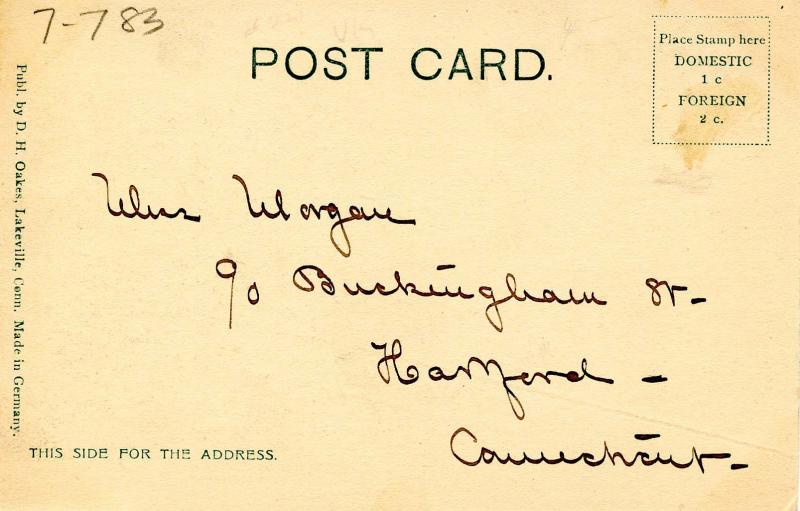 7-783
POST CARD.
Place Stamp here
DOMESTIC
1 c
FOREIGN
2 c.
Publ. by D. H. Oakes, Lakeville, Conn. Made in Germany.
Miss Morgan
90 Buckingham St-
Hartford -
Connecticut-
THIS SIDE FOR THE ADDRESS.